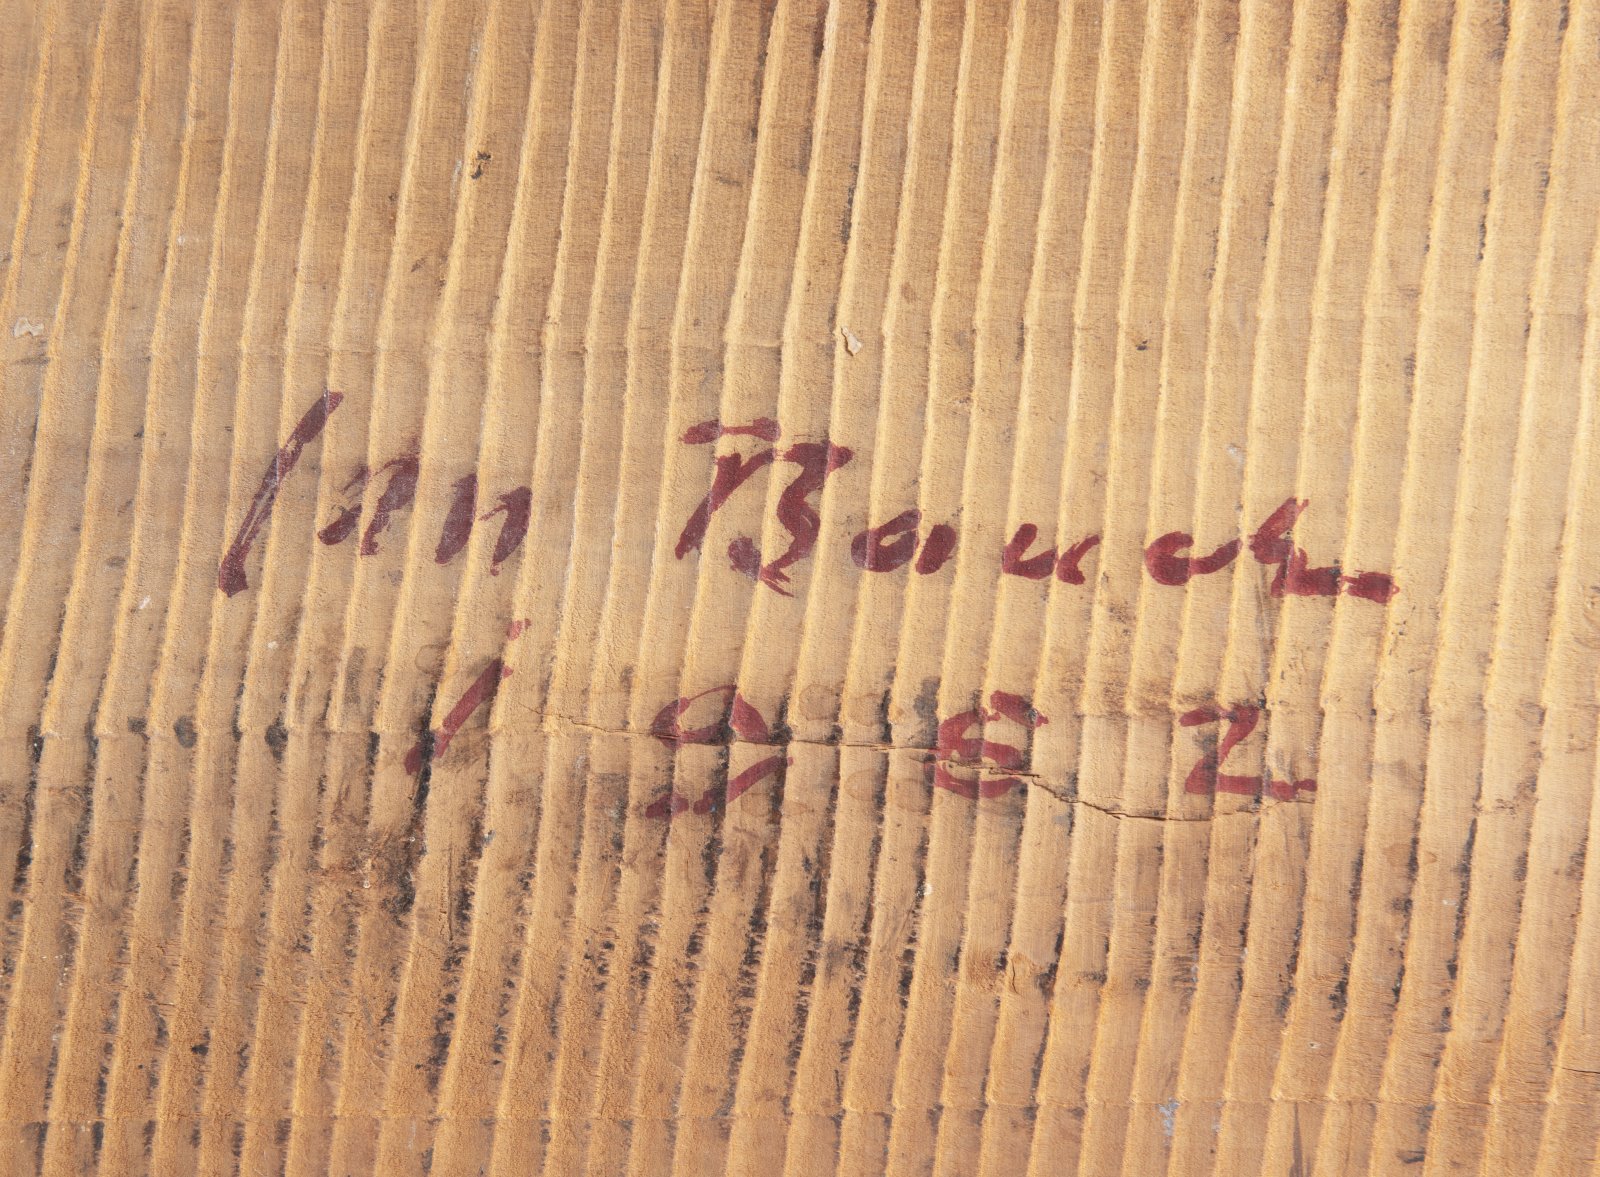 Jan Bauch
1982